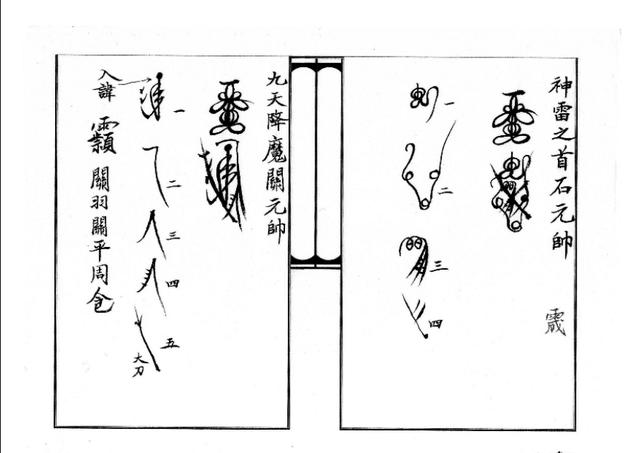 神雷之首石元帥
一
二
三
四
九天降魔關元帥
一
二
三
四
五
大刀
入諱
關羽關平周仓